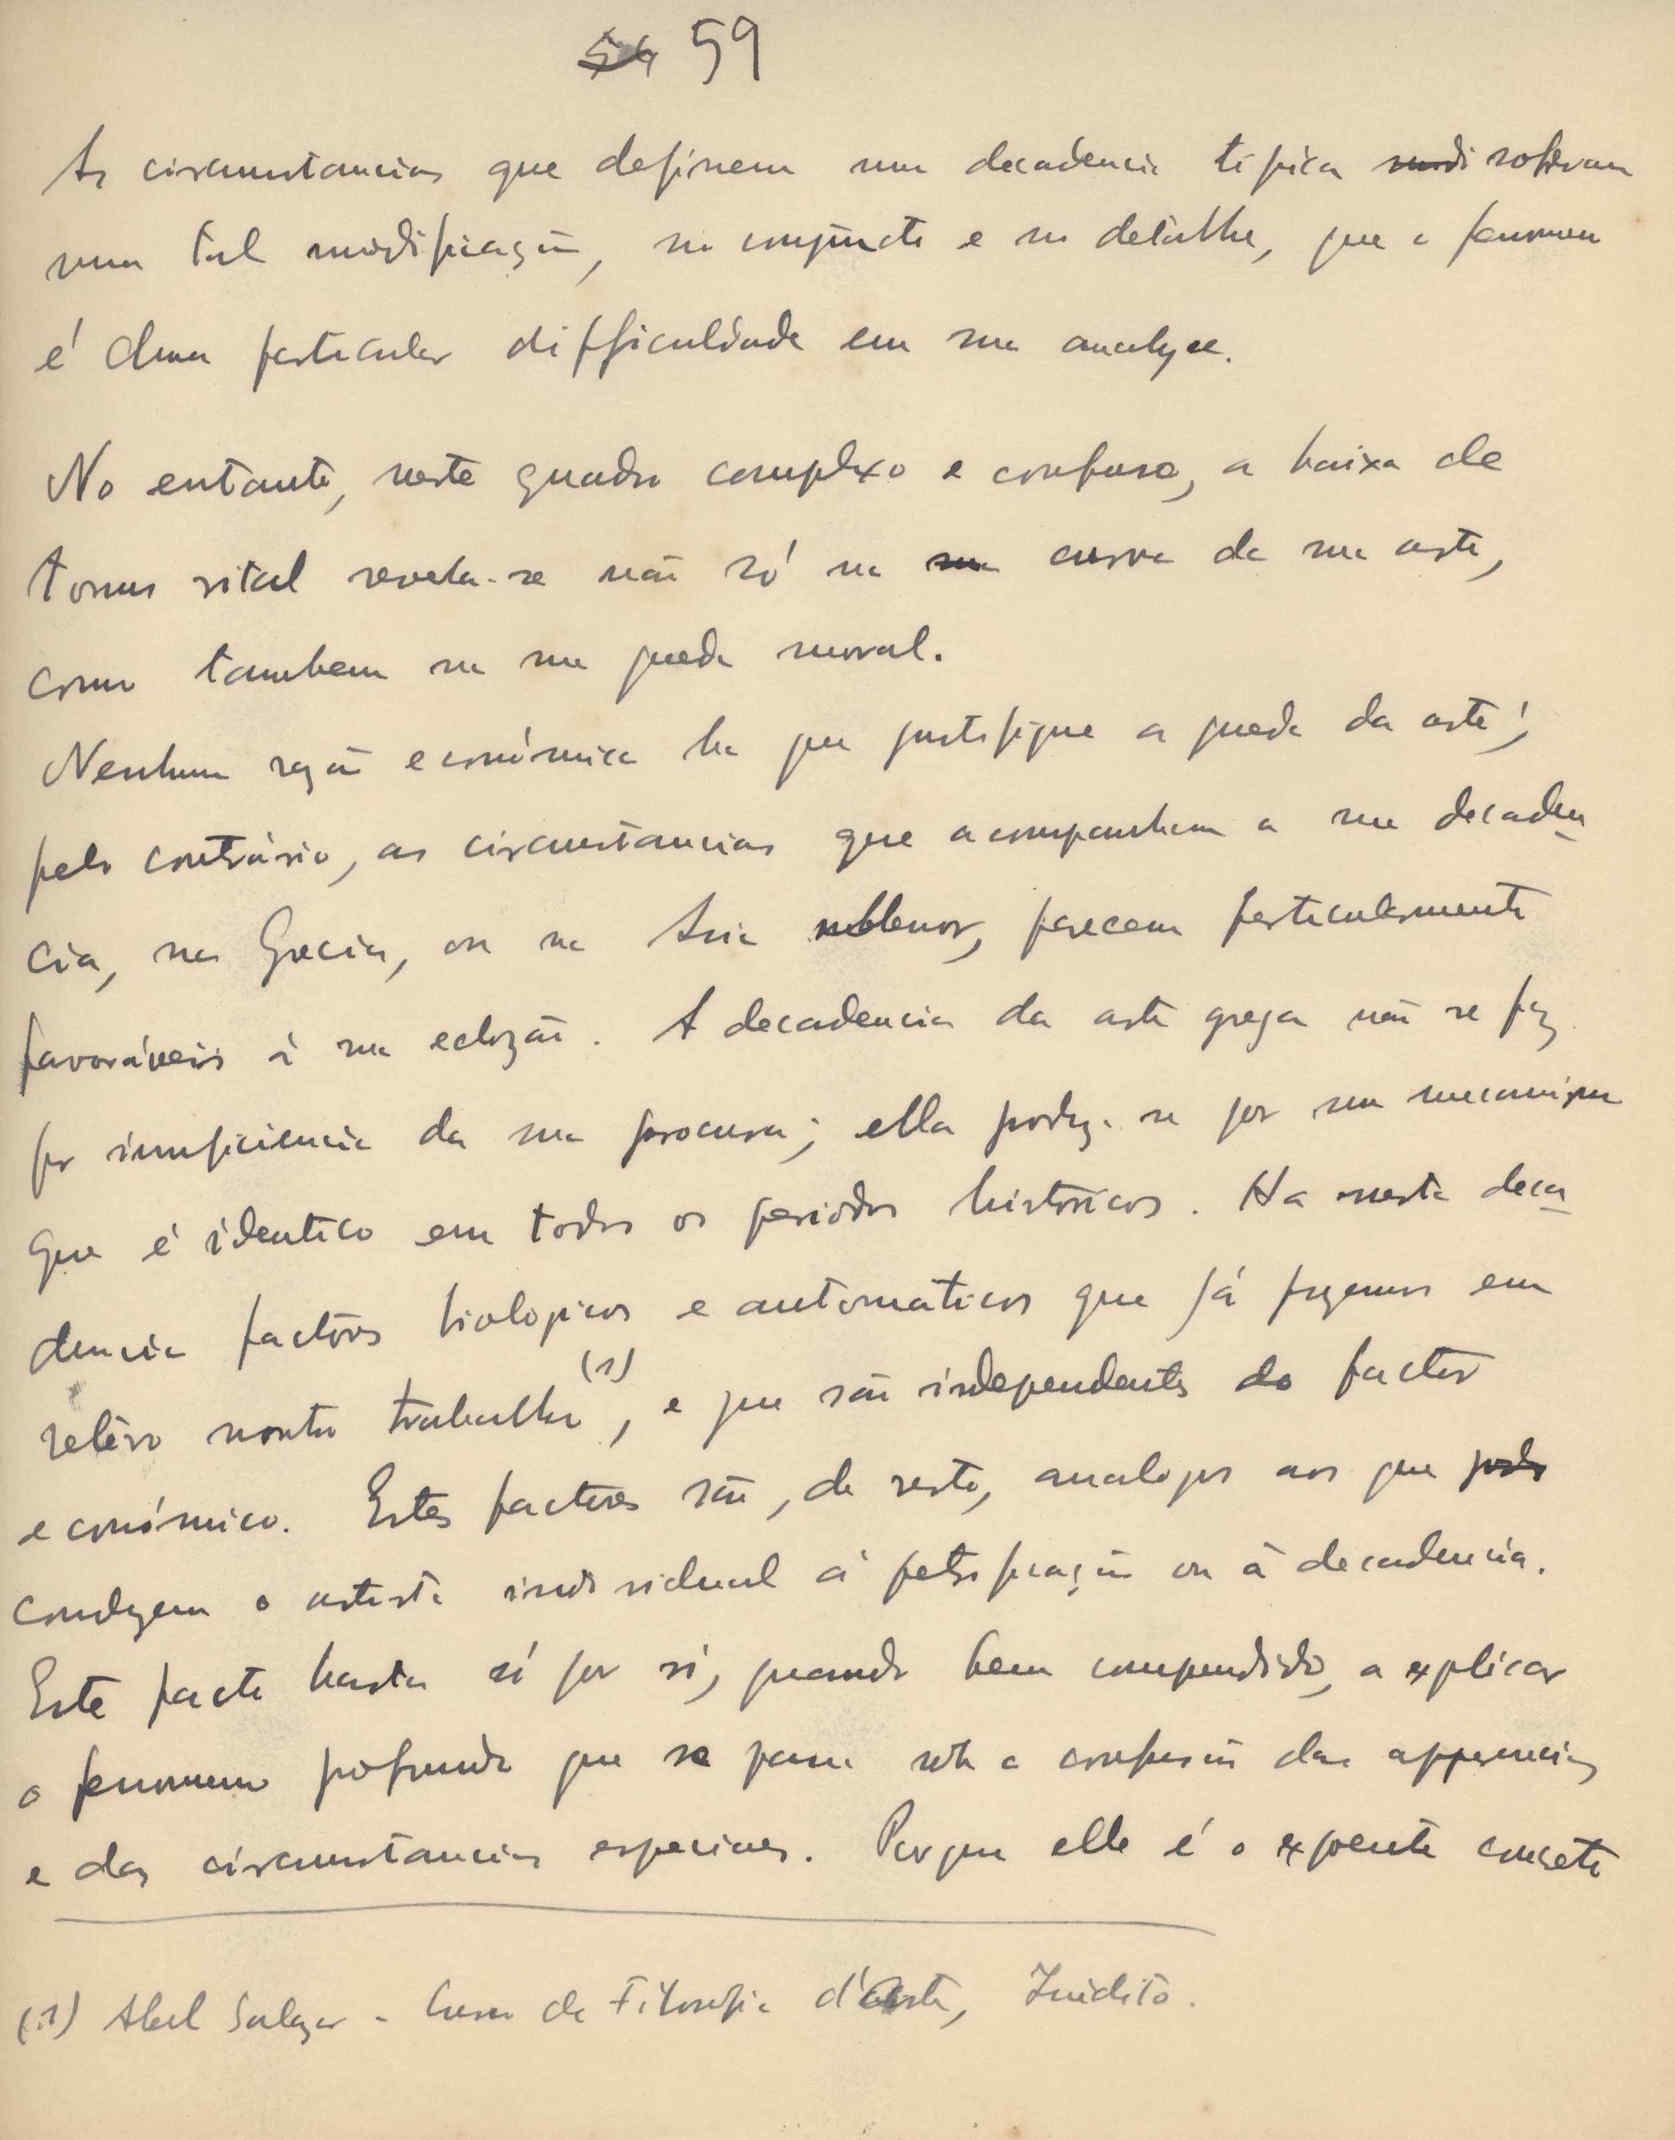 59
As circumstancias que definem uma decadencia típica sofreram
uma tal modificação, no conjuncto e no detalhe, que o fenomeno
é duma particular difficuldade em sua analyse.
No entanto, neste quadro complexo e confuso, a baixa de
tonus vital revela-se não só na curva da sua arte,
como tambem na sua queda moral.
Nenhuma razão económica ha que justifique a queda da arte;
pelo contrário, as circumstancias que acompanham a sua decaden
cia, na Grecia, ou na Asia Menor, parecem particularmente
favoráveis á sua eclozão. A decadencia da arte grega não se fez
por insuficiencia da sua procura; ella produz-se por um mecanismo
que é identico em todos os periodos históricos. Ha nesta deca
dencia factores biologicos e automáticos que já fizemos em
relêvo noutro trabalho (1), e que são independentes do factor
económico. Estes factores são, de resto, analogos aos que
conduzem o artista individual á petrificação ou á decadencia.
Este facto basta só por si, quando bem compendido, a explicar
o fenomeno profundo que se passa sob a confusão das apparencias
e das circumstancias especiaes. Porque elle é o expoente concreto
(1) Abel Salazar - Curso de Filosofia d'Arte, Inédito.